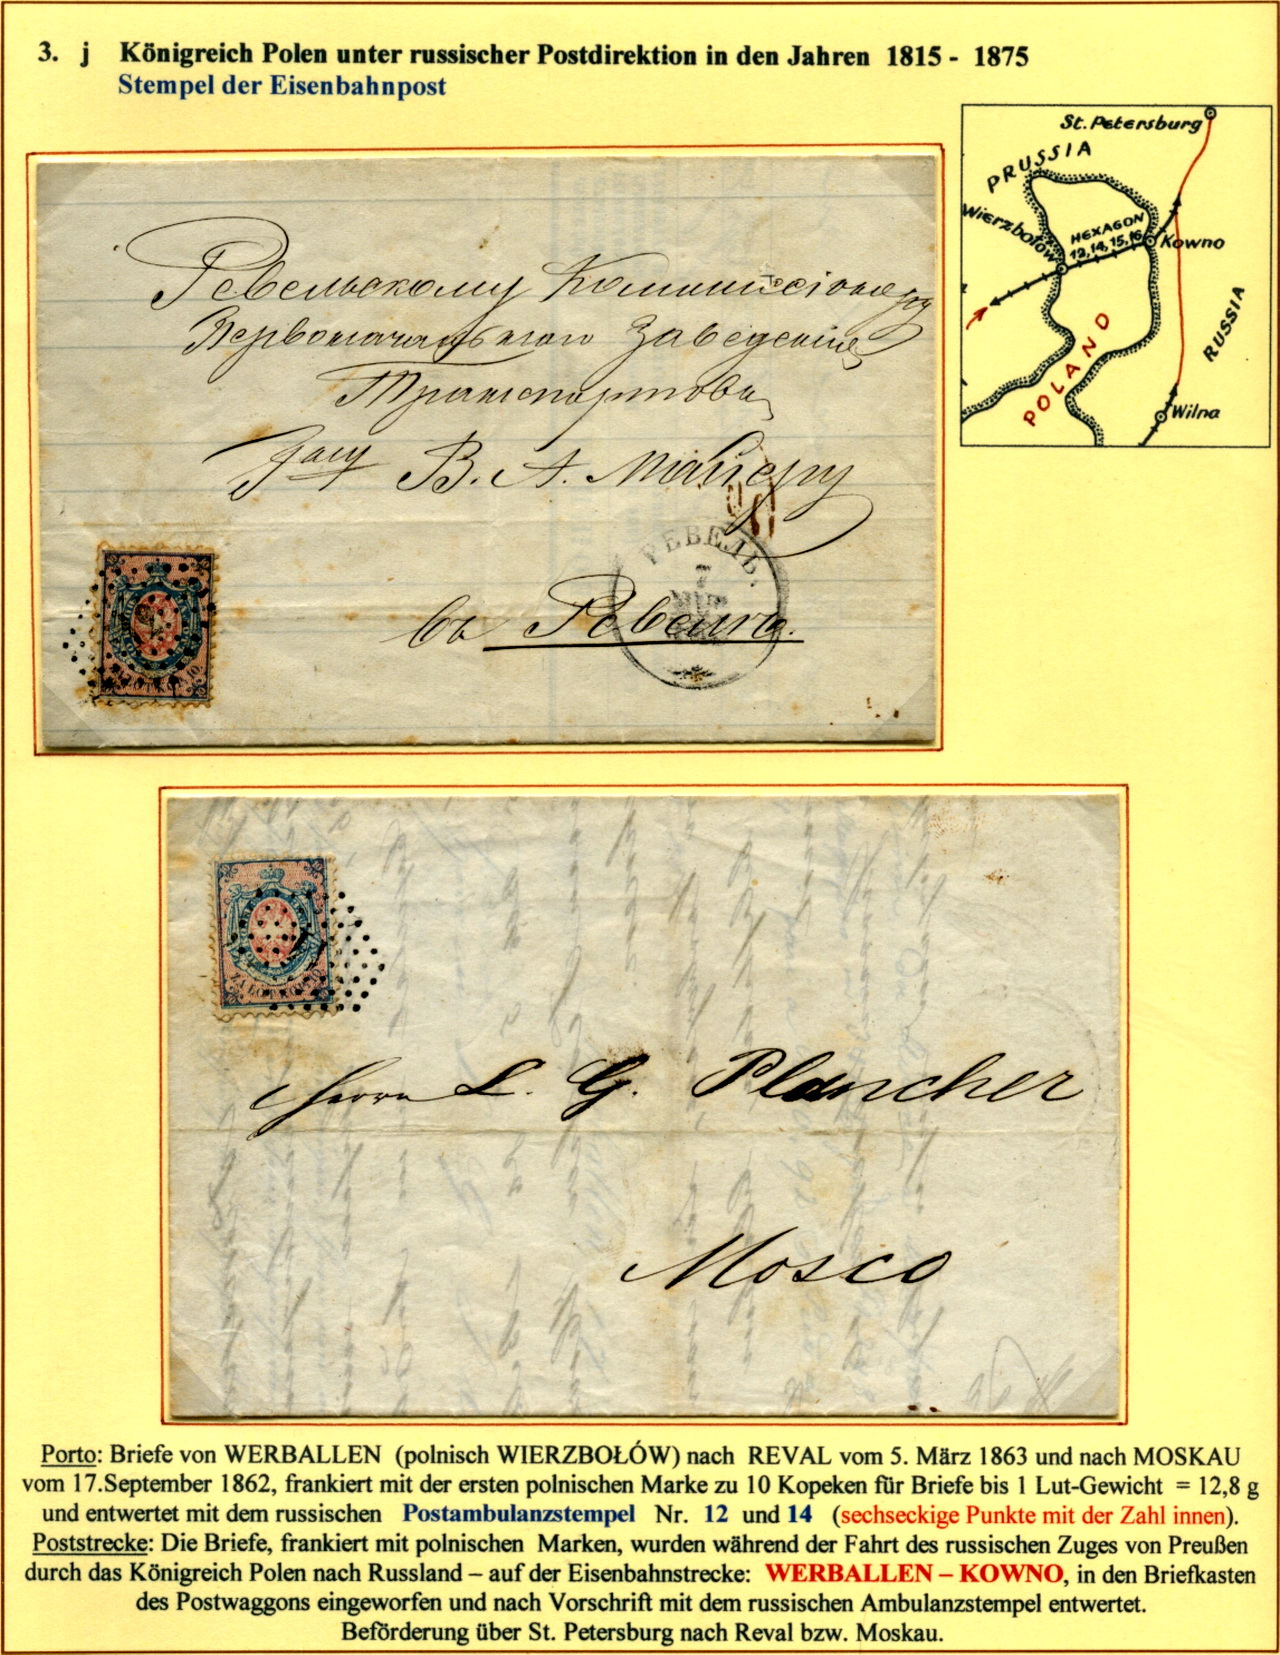 3. j Königreich Polen unter russischer Postdirektion in den Jahren 1815 - 1875
Stempel der Eisenbahnpost
St. Petersburg
PRUSSIA
Wierzbołów
HEXAGON
12, 14, 15, 16
Kowno
RUSSIA
POLAND
Wilna
Ревельскому Коммиссіонеру
Первоначальнаго Заведенія
Транспортовъ
В. А. Майеру
РЕВЕЛЬ.
7
въ Ревель.
Herrn L. G. Plancher
Mosco
Porto: Briefe von WERBALLEN (polnisch WIERZBOŁÓW) nach REVAL vom 5. März 1863 und nach MOSKAU
vom 17.September 1862, frankiert mit der ersten polnischen Marke zu 10 Kopeken für Briefe bis 1 Lut-Gewicht = 12,8 g
und entwertet mit dem russischen Postambulanzstempel Nr. 12 und 14 (sechseckige Punkte mit der Zahl innen).
Poststrecke: Die Briefe, frankiert mit polnischen Marken, wurden während der Fahrt des russischen Zuges von Preußen
durch das Königreich Polen nach Russland – auf der Eisenbahnstrecke: WERBALLEN – KOWNO, in den Briefkasten
des Postwaggons eingeworfen und nach Vorschrift mit dem russischen Ambulanzstempel entwertet.
Beförderung über St. Petersburg nach Reval bzw. Moskau.